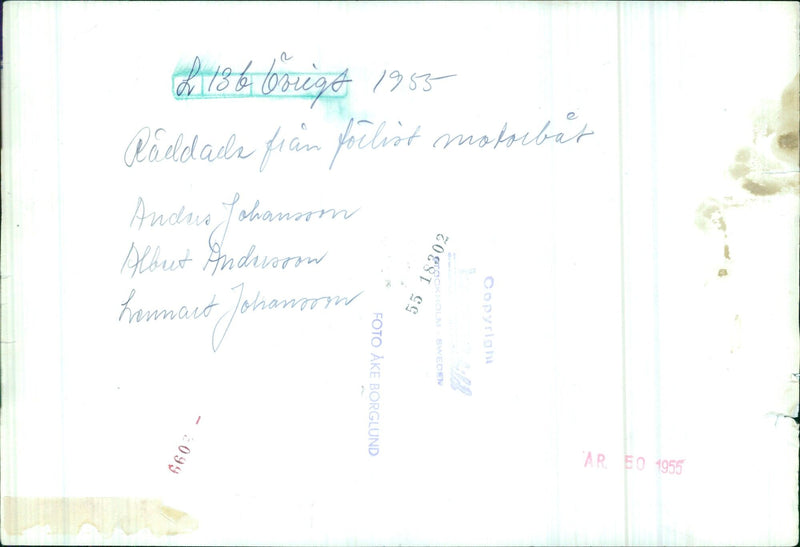 L 136 Övrigt 1955
Räddade från förlist motorbåt
Anders Johansson
Albert Andersson
Lennart Johansson
55 18302
Copyright
STOCKHOLM - SWEDEN
FOTO ÅKE BORGLUND
AR. 50 1955